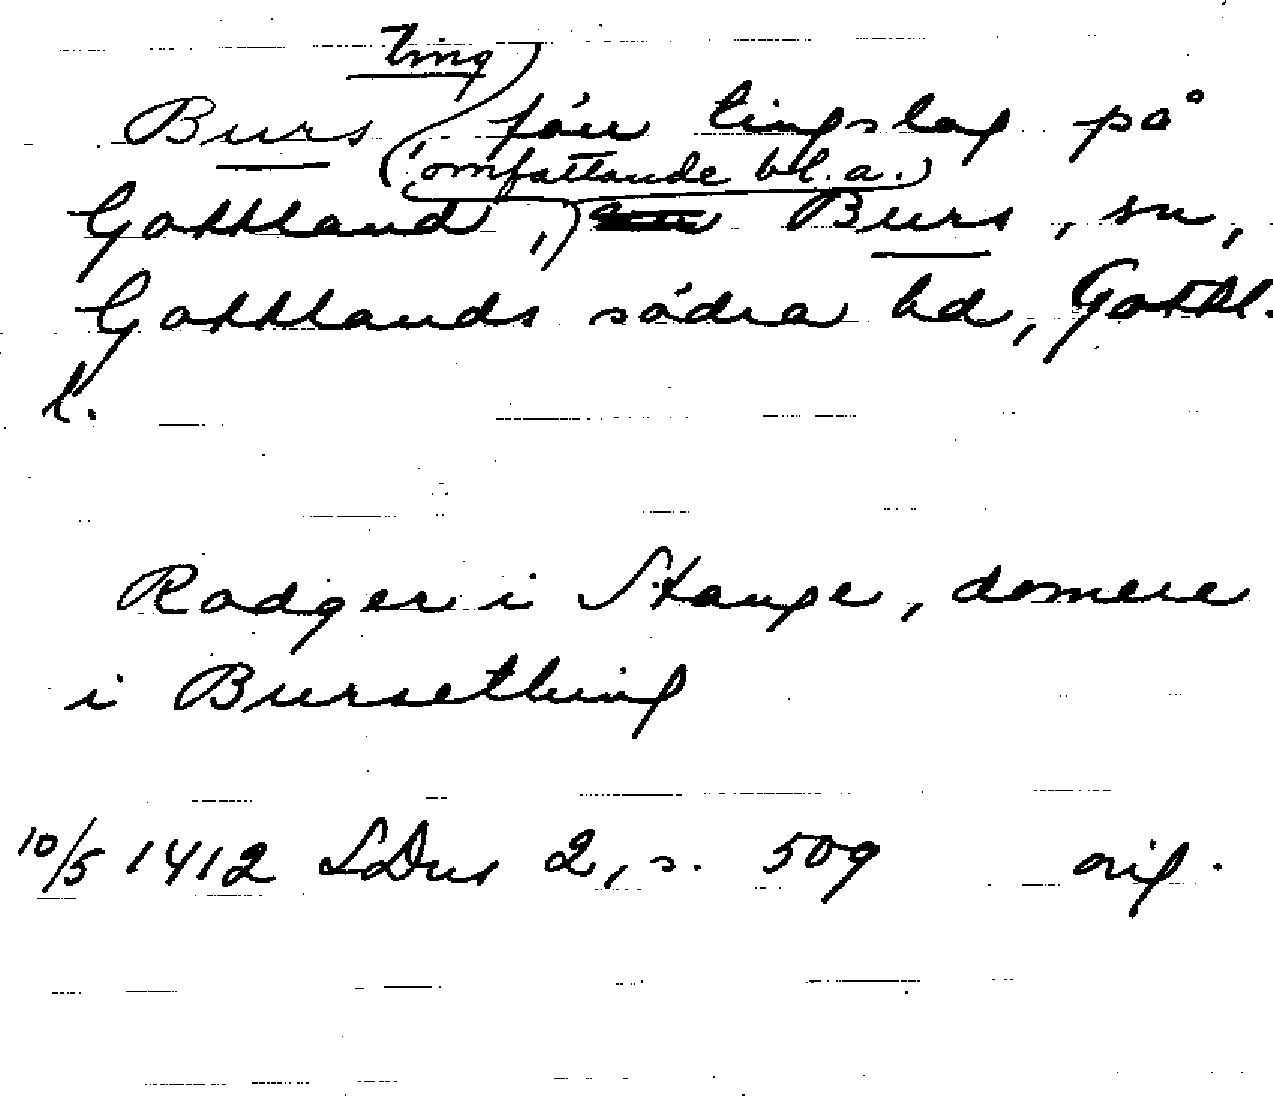 ting
Burs, förr tingslag på
omfattande bl. a.
Gottland, Burs, sn,
Gottlands södra hd, Gottl.
l.
Rodger i Stange, domere
i Bursething
10/5 1412 SDns 2, s. 509 orig.